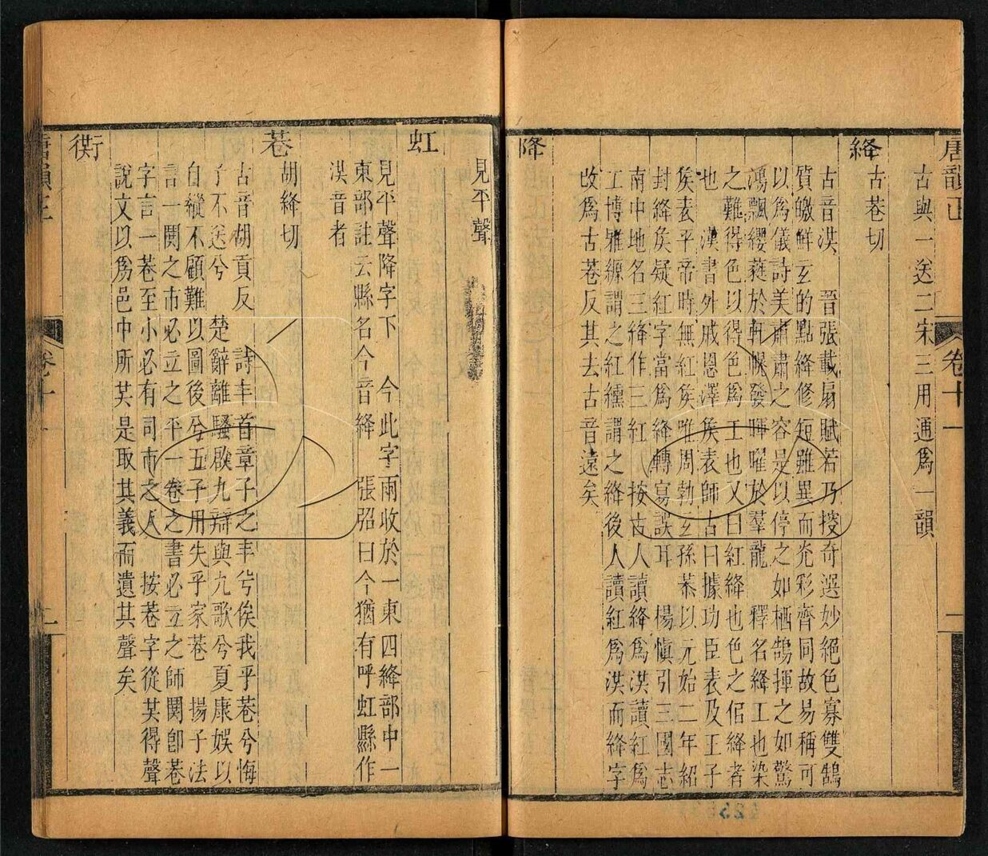 唐韻正
卷十一
古與一送二宋三用通爲一韻
絳
古巷切
古音洚 晉張載扇賦若乃搜奇選妙絕色寡雙鵠
質皦鮮玄的點絳修短雖異而光彩齊同故易稱可
以爲儀詩美肅肅之容是以停之如栖鵠揮之如驚
鴻飄纓蕤於軒幌發暉曜於羣龍 釋名絳工也染
之難得色以得色爲工也又曰紅絳也色之佀絳者
也 漢書外戚恩澤矦表師古曰據功臣表及王子
矦表平帝時無紅矦唯周勃玄孫恭以元始二年紹
封絳矦疑紅字當爲絳轉寫誤耳 楊愼引三國志
南中地名三絳作三紅 按古人讀絳爲洚讀紅爲
工博雅纁謂之紅纁謂之絳後人讀紅爲洪而絳字
改爲古巷反其去古音遠矣
降
見平聲
虹
見平聲降字下 今此字兩收於一東四絳部中一
東部註云縣名今音絳 張弨曰今猶有呼虹縣作
洚音者
巷
胡絳切
古音胡貢反 詩丰首章子之丰兮俟我乎巷兮悔
予不送兮 楚辭離騷啟九辯與九歌兮夏康娛以
自縱不顧難以圖後兮五子用失乎家巷 揚子法
言一閧之市必立之平一卷之書必立之師閧卽巷
字言一巷至小必有司市之人 按巷字從共得聲
說文以爲邑中所共是取其義而遺其聲矣
衖
唐韻正
卷十一